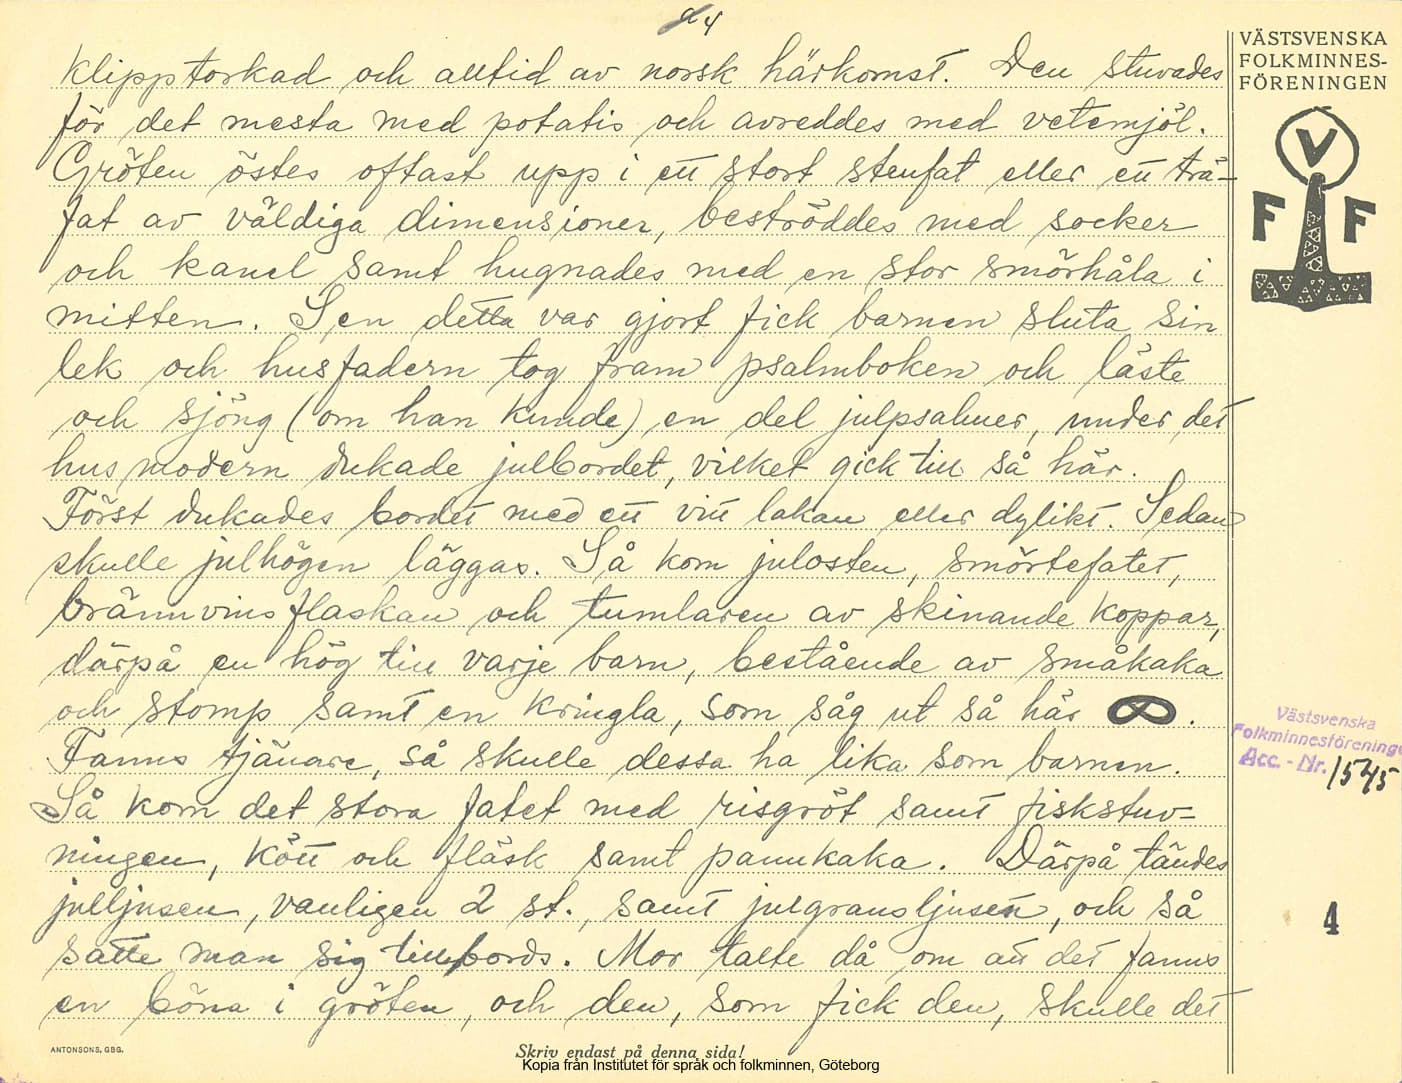 4
klipptorkad och alltid av norsk härkomst. Den stuvades
för det mesta med potatis och avreddes med vetemjöl.
Gröten östes oftast upp i ett stort stenfat eller ett trä-
fat av väldiga dimensioner, beströddes med socker
och kanel samt hugnades med en stor smörhåla i
mitten. Sen detta var gjort fick barnen sluta sin
lek och husfadern tog fram psalmboken och läste
och sjöng (om han kunde) en del julpsalmer, under det
husmodern dukade julbordet, vilket gick till så här.
Först dukades bordet med ett vitt lakan eller dylikt. Sedan
skulle julhögen läggas. Så kom julosten, smörtefatet,
brännvinsflaskan och tumlaren av skinande koppar,
därpå en hög till varje barn, bestående av småkaka
och stomp samt en kringla, som såg ut så här .
Fanns tjänare, så skulle dessa ha lika som barnen.
Så kom det stora fatet med risgröt samt fiskstuv-
ningen, kött och fläsk samt pannkaka. Därpå tändes
julljusen, vanligen 2 st., samt julgransljusen, och så
satte man sig till bords. Mor talte då om att det fanns
en böna i gröten, och den, som fick den, skulle det
VÄSTSVENSKA
FOLKMINNES-
FÖRENINGEN
V
F F
Västsvenska
Folkminnesförening
Acc. - Nr. 1545
4
ANTONSONS, GBG.
Skriv endast på denna sida!
Kopia från Institutet för språk och folkminnen, Göteborg